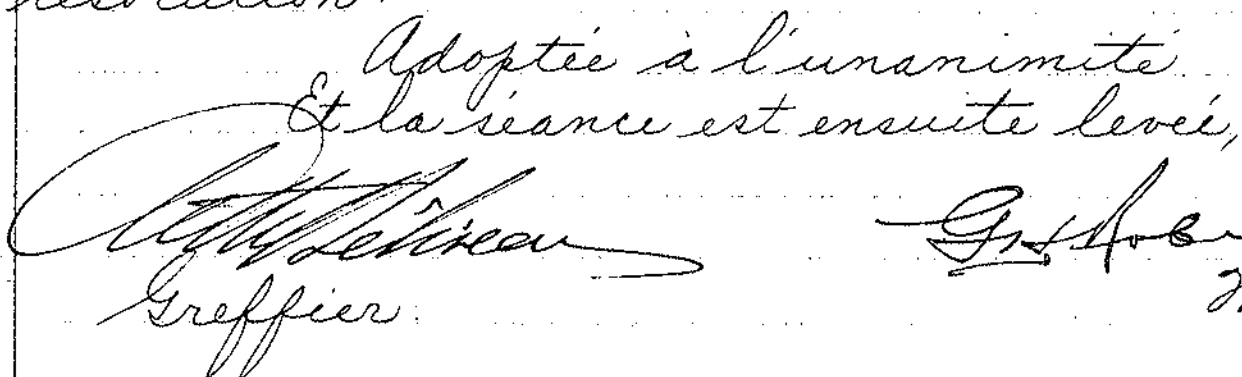 résolution.
Adoptée à l'unanimité
Et la séance est ensuite levée,
Greffier